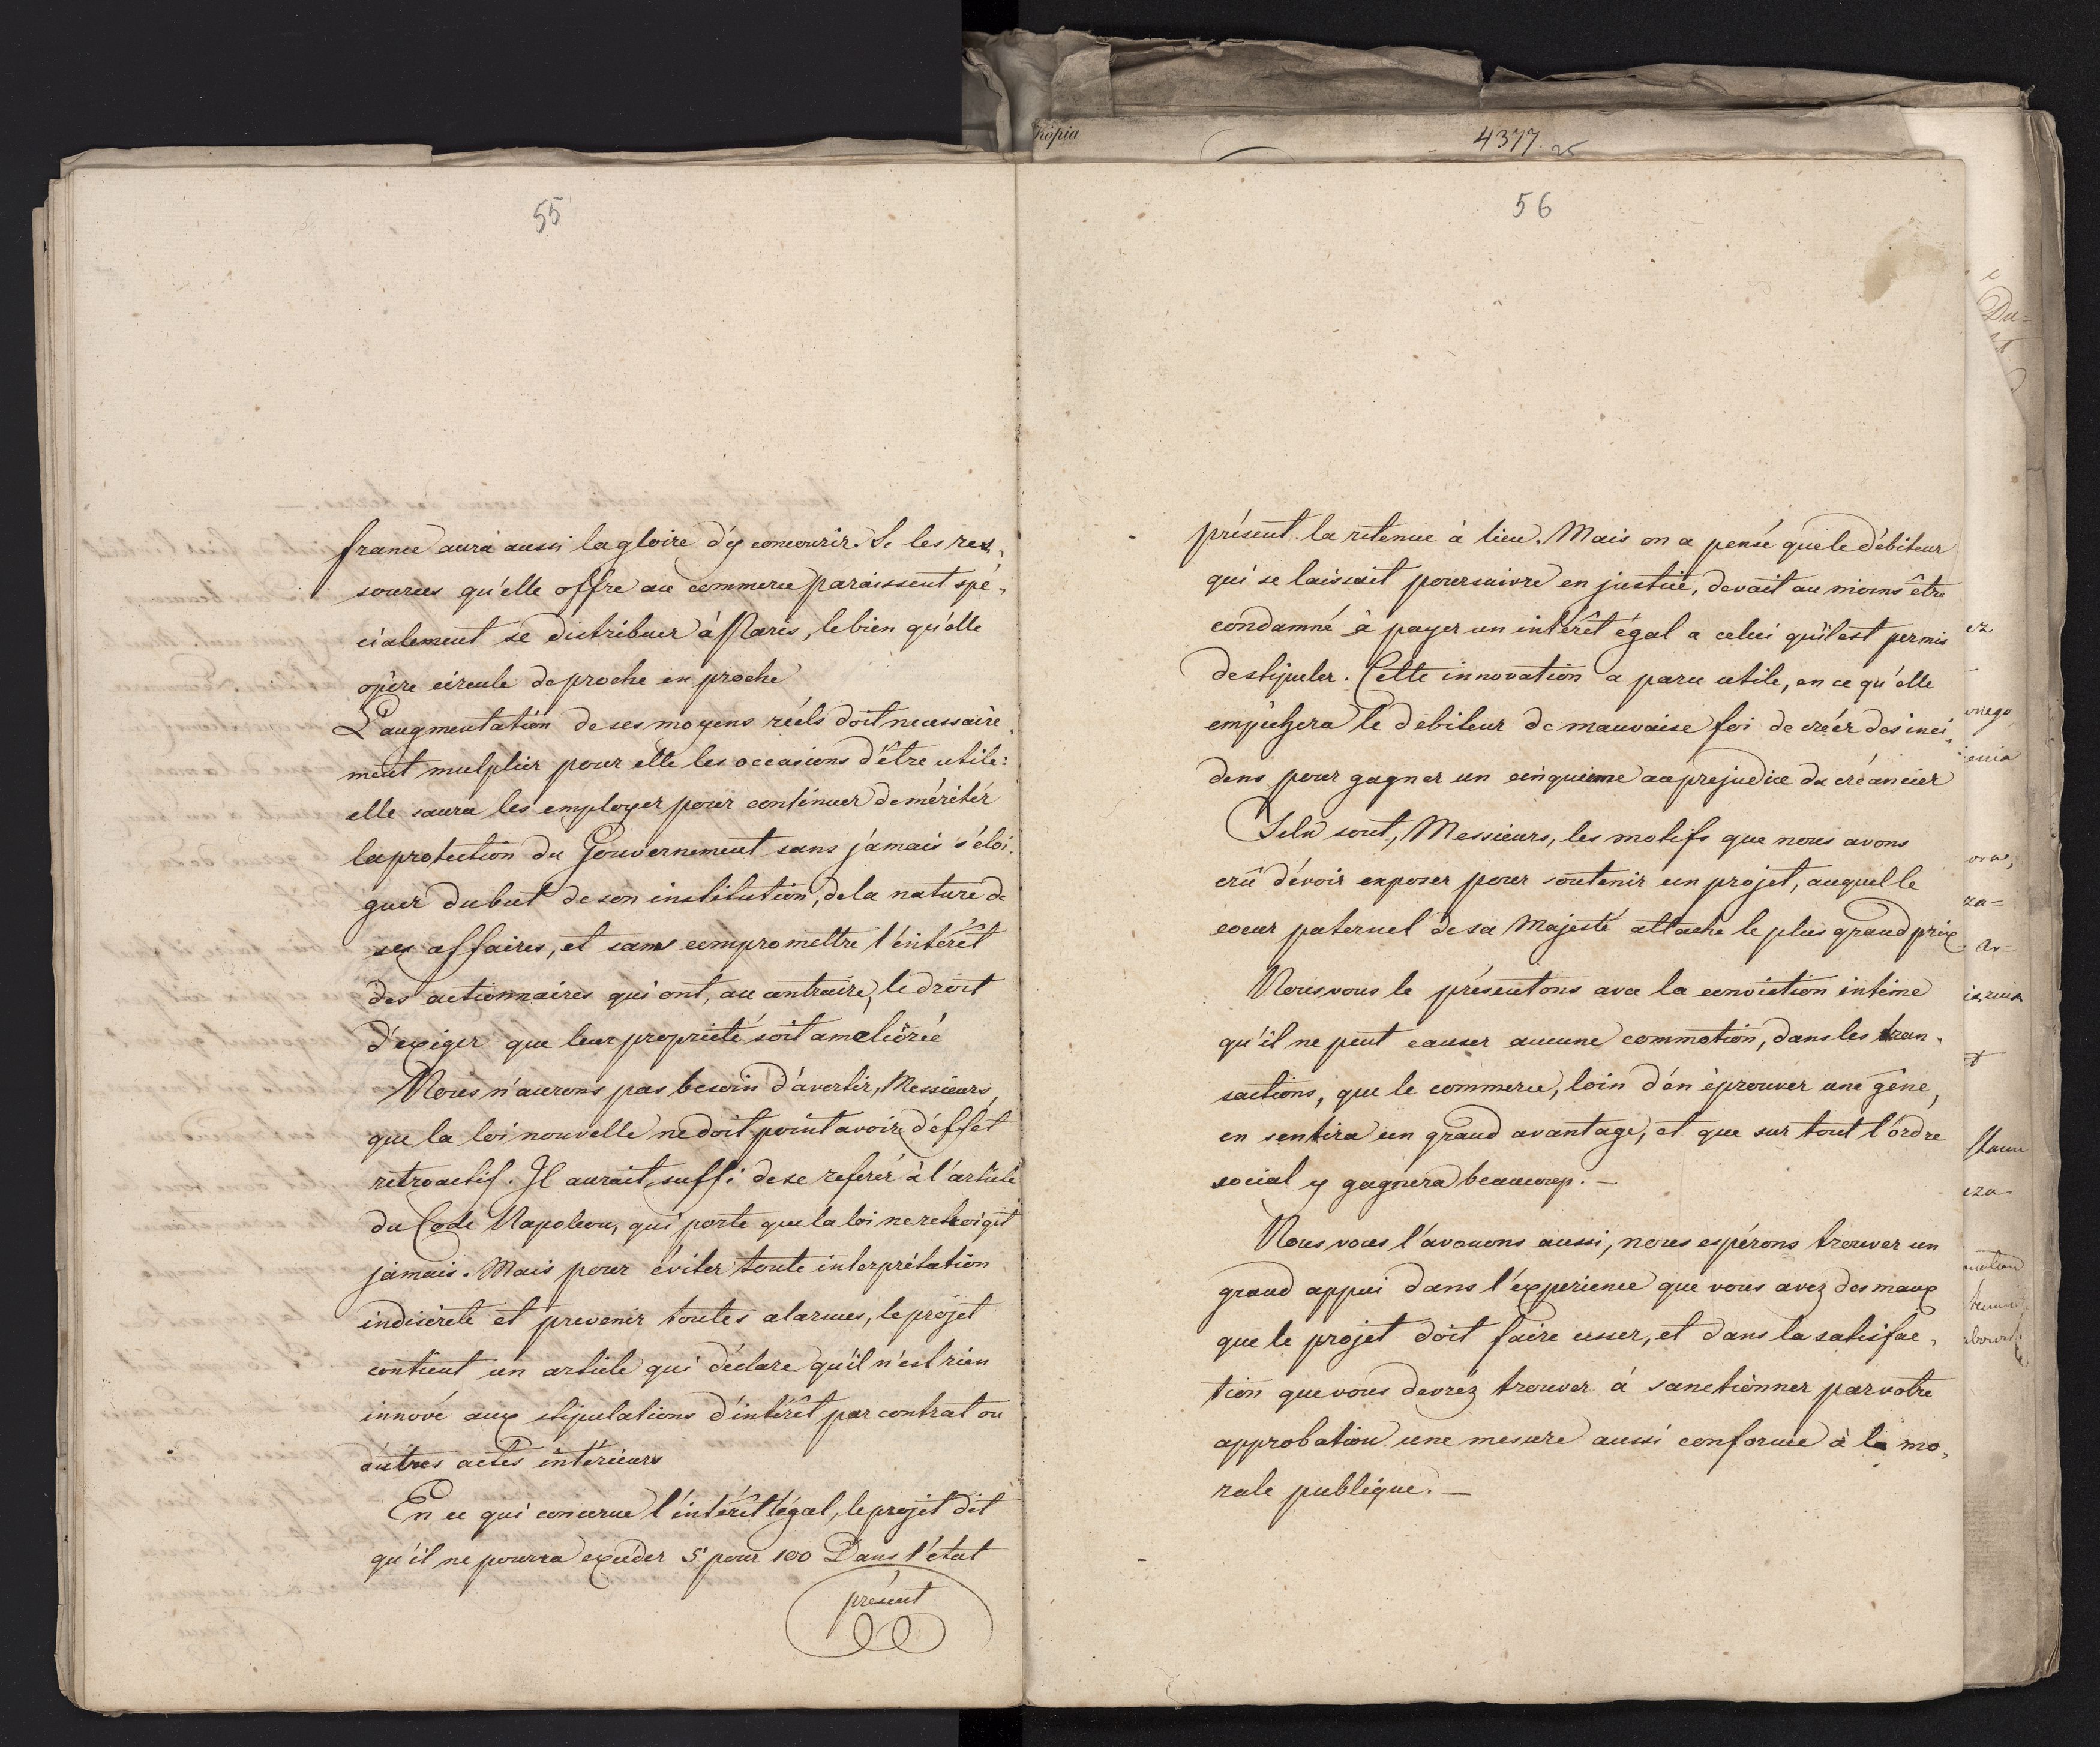 Kopia
4377. 25
55
france aura aussi la gloire d'y concourir. Si les res-
sources qu'elle offre au commerce paraissent spé-
cialement se distribuer à Paris, le bien qu'elle
opère circule de proche en proche
L'augmentation de ses moyens réels doit necessaire-
ment mulplier pour elle les occasions d'être utile:
elle saura les employer pour continuer de mériter
la protection du Gouvernement sans jamais s'éloi-
gner du but de son institution, de la nature de
ses affaires, et sans compromettre l'intérêt
des actionnaires qui ont, au contraire, le droit
d'exiger que leur proprieté soit ameliorée
Nous n'aurons pas besoin d'avertir, Messieurs,
que la loi nouvelle ne doit point avoir d'éffét
retroactif. Il aurait suffi de se referér à l'article
du Code Napoleon, qui porte que la loi ne retroigit
jamais. Mais pour éviter toute interprétation
indiscrete et prevenir toutes alarmes, le projet
contient un article qui déclare qu'il n'est rien
innové aux stipulations d'intérêt par contrat ou
autres actes intérieurs
En ce qui concerne l'intérêt légal, le projet dit
qu'il ne pourra excéder 5 pour 100 Dans l'état
présent
56
présent la retenue à lieu. Mais on a pensé que le débiteur
qui se laissait poursuivre en justice, devait au moins être
condamné à payer un intérêt égal a celui qu'il est permis
de stipuler. Cette innovation a paru utile, en ce qu'elle
empêchera le debiteur de mauvaise foi de créér des inci-
dens pour gagner un cinquieme au prejudice du créancier
Tels sont, Messieurs, les motifs que nous avons
crû dévoir exposer pour soutenir un projet, auquel le
coeur paternel de sa Majesté attache le plus grand prix
Nous vous le présentons avec la conviction intime
qu'il ne peut causer aucune commotion, dans les tran-
sactions, que le commerce, loin d'en éprouver une gêne,
en sentira un grand avantage, et que sur tout l'ordre
social y gagnera beaucoup. —
Nous vous l'avouons aussi, nous espérons trouver un
grand appui dans l'éxperience que vous avez des maux
que le projet doit faire cesser, et dans la satisfac-
tion que vous devrez trouver á sanctionner par votre
approbation une mesure aussi conforme à la mo-
rale publique. —